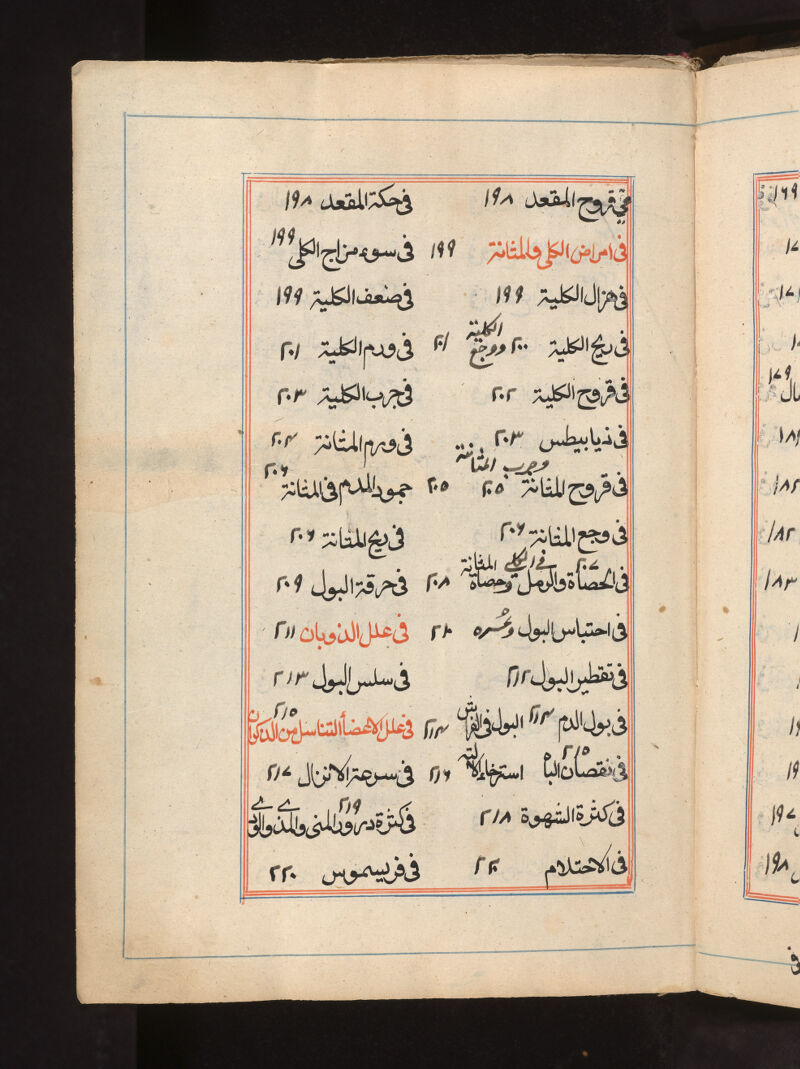 في قروح المقعد ١٩٨ في حكة المقعد ١٩٨
في امراض الكلى والمثانة ١٩٩ في سوء مزاج الكلى ١٩٩
في هزال الكلية ١٩٩ في ضعف الكلية ١٩٩
في ريح الكلية ٢٠٠ ووجع الكلية ٢٠١ في ورم الكلية ٢٠١
في قروح الكلية ٢٠٢ في جرب الكلية ٢٠٣
في ذيابيطس ٢٠٣ في ورم المثانة ٢٠٤
في قروح المثانة ٢٠٥ وجرب المثانة ٢٠٥ جمود الدم في المثانة ٢٠٦
في وجع المثانة ٢٠٦ في ريح المثانة ٢٠٦
في الحصاة والرمل ٢٠٧ وحصاة في الكلى المثانة ٢٠٨ في حرقة البول ٢٠٩
في احتباس البول وعسره ٢١٠ في علل الذوبان ٢١١
في تقطير البول ٢١٢ في سلس البول ٢١٣
في بول الدم ٢١٣ البول في الفراش ٢١٤ في علل الاعضأ التناسل من الذكران ٢١٥
في نقصان الباه ٢١٥ استرخاء الالته ٢١٦ في سرعة الانزال ٢١٧
في كثرة الشهوة ٢١٨ في كثرة درور المنى والمذي والودي ٢١٩
في الاحتلام ٢٢٠ في فريسموس ٢٢٠
١٦٩
١٧
١٧١
١٧٩
١٨٢
١٨٢
١٨٣
١٩
١٩٧
١٩٨
في